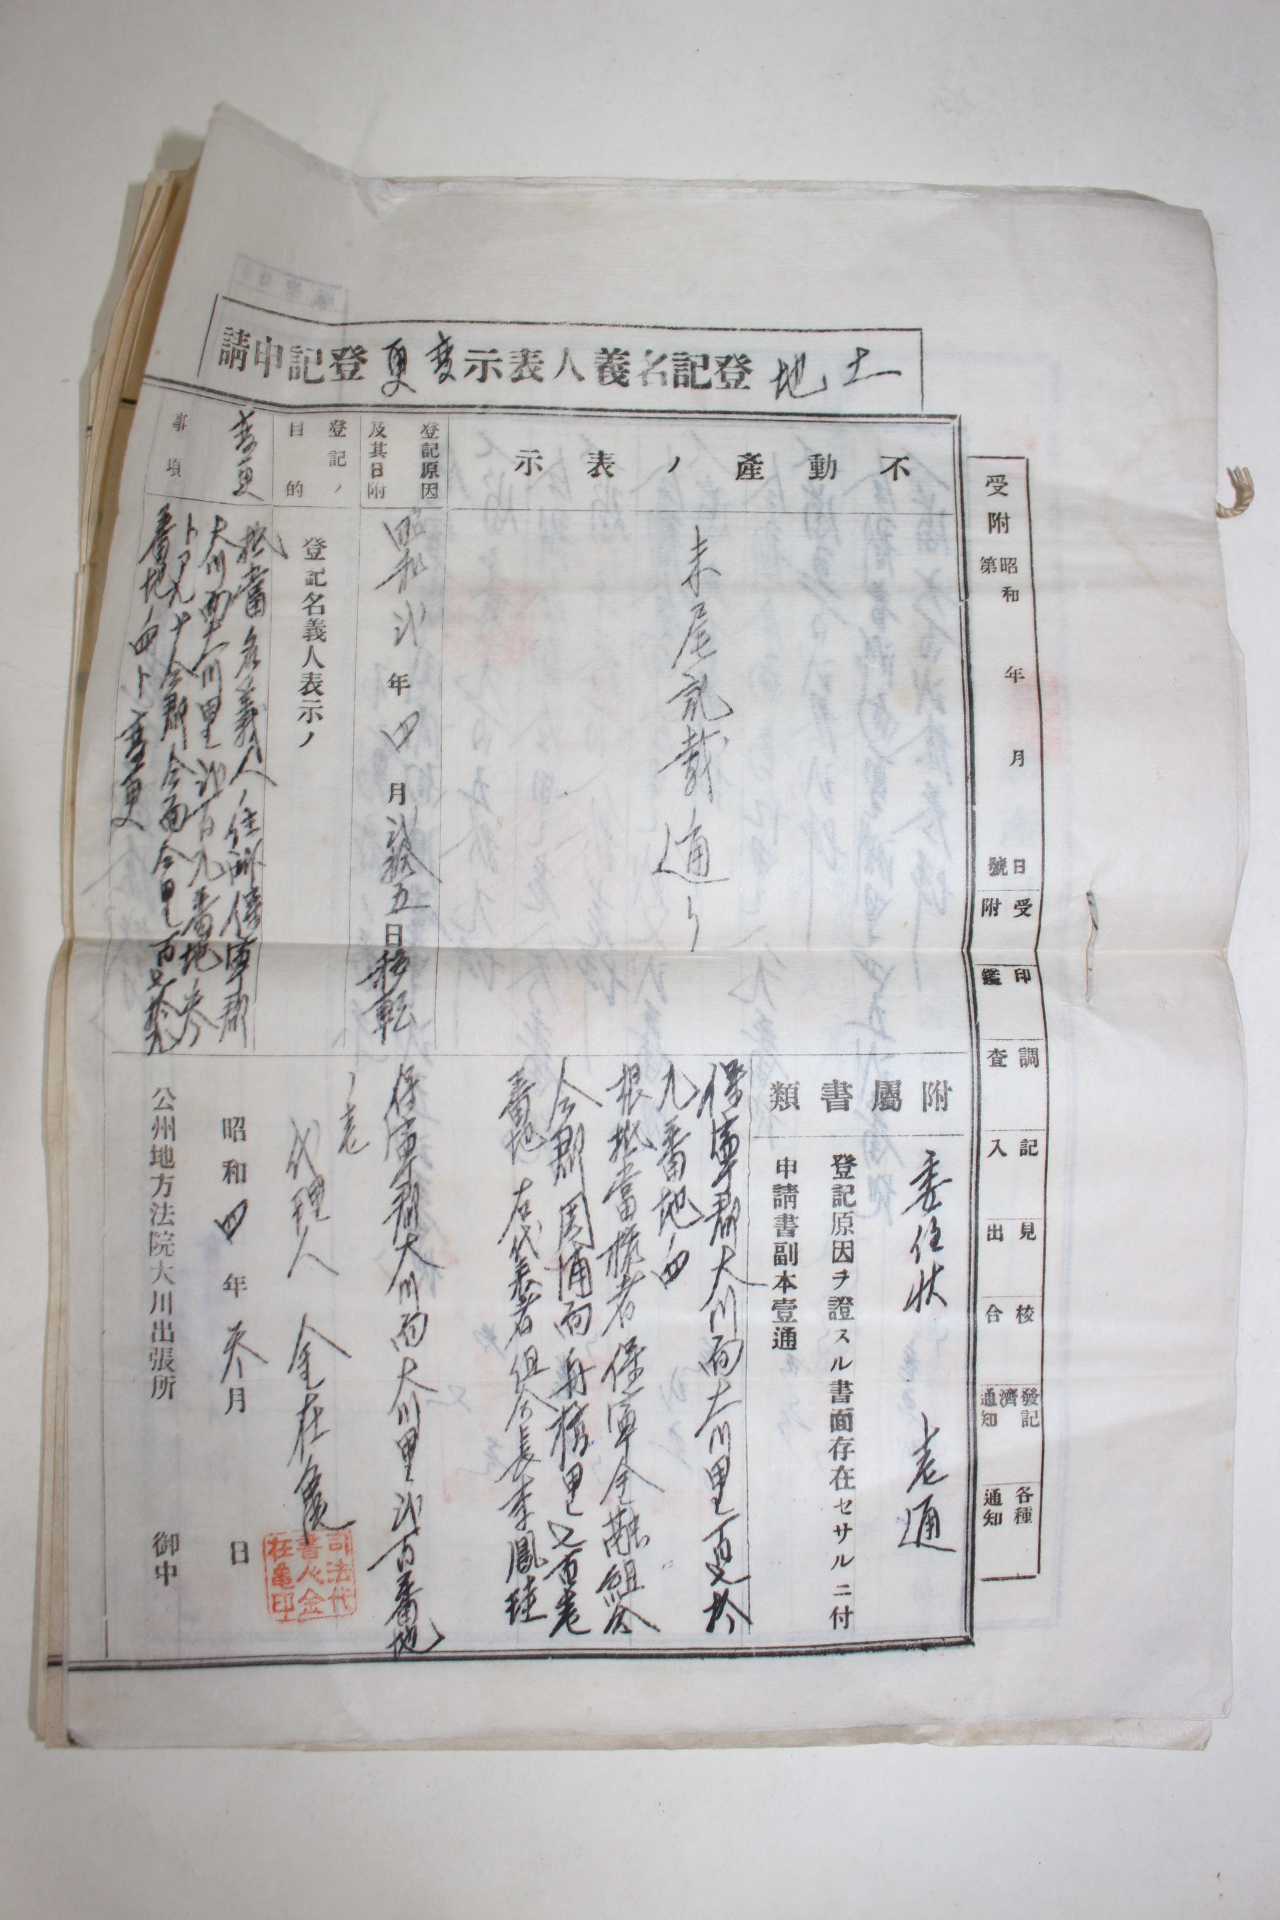 土地登記名義人表示變更登記申請
受附
昭和 年 月 日
第 號
受附
印鑑
調査
記入
見出
校合
登記濟通知
各種通知
不動産ノ表示
末尾記載ノ通リ
登記原因及其日附
昭和弐年四月弐拾五日移転
登記ノ目的
登記名義人表示ノ
變更
事項
抵當名義人ノ住所保寧郡
大川面大川里弐百九番地参
番地ノ四ト変更
附屬書類
委任狀 壱通
登記原因ヲ證スル書面存在セサルニ付
申請書副本壹通
保寧郡大川面大川里
九番地ノ四
根抵當權者 保寧金融組合
仝郡周浦面舟橋里七百壱
番地 右代表者組合長李鳳珪
保寧郡大川面大川里弐百番地
ノ壱
代理人 金在
司法代書人金在龜印
昭和四年参月 日
公州地方法院大川出張所 御中